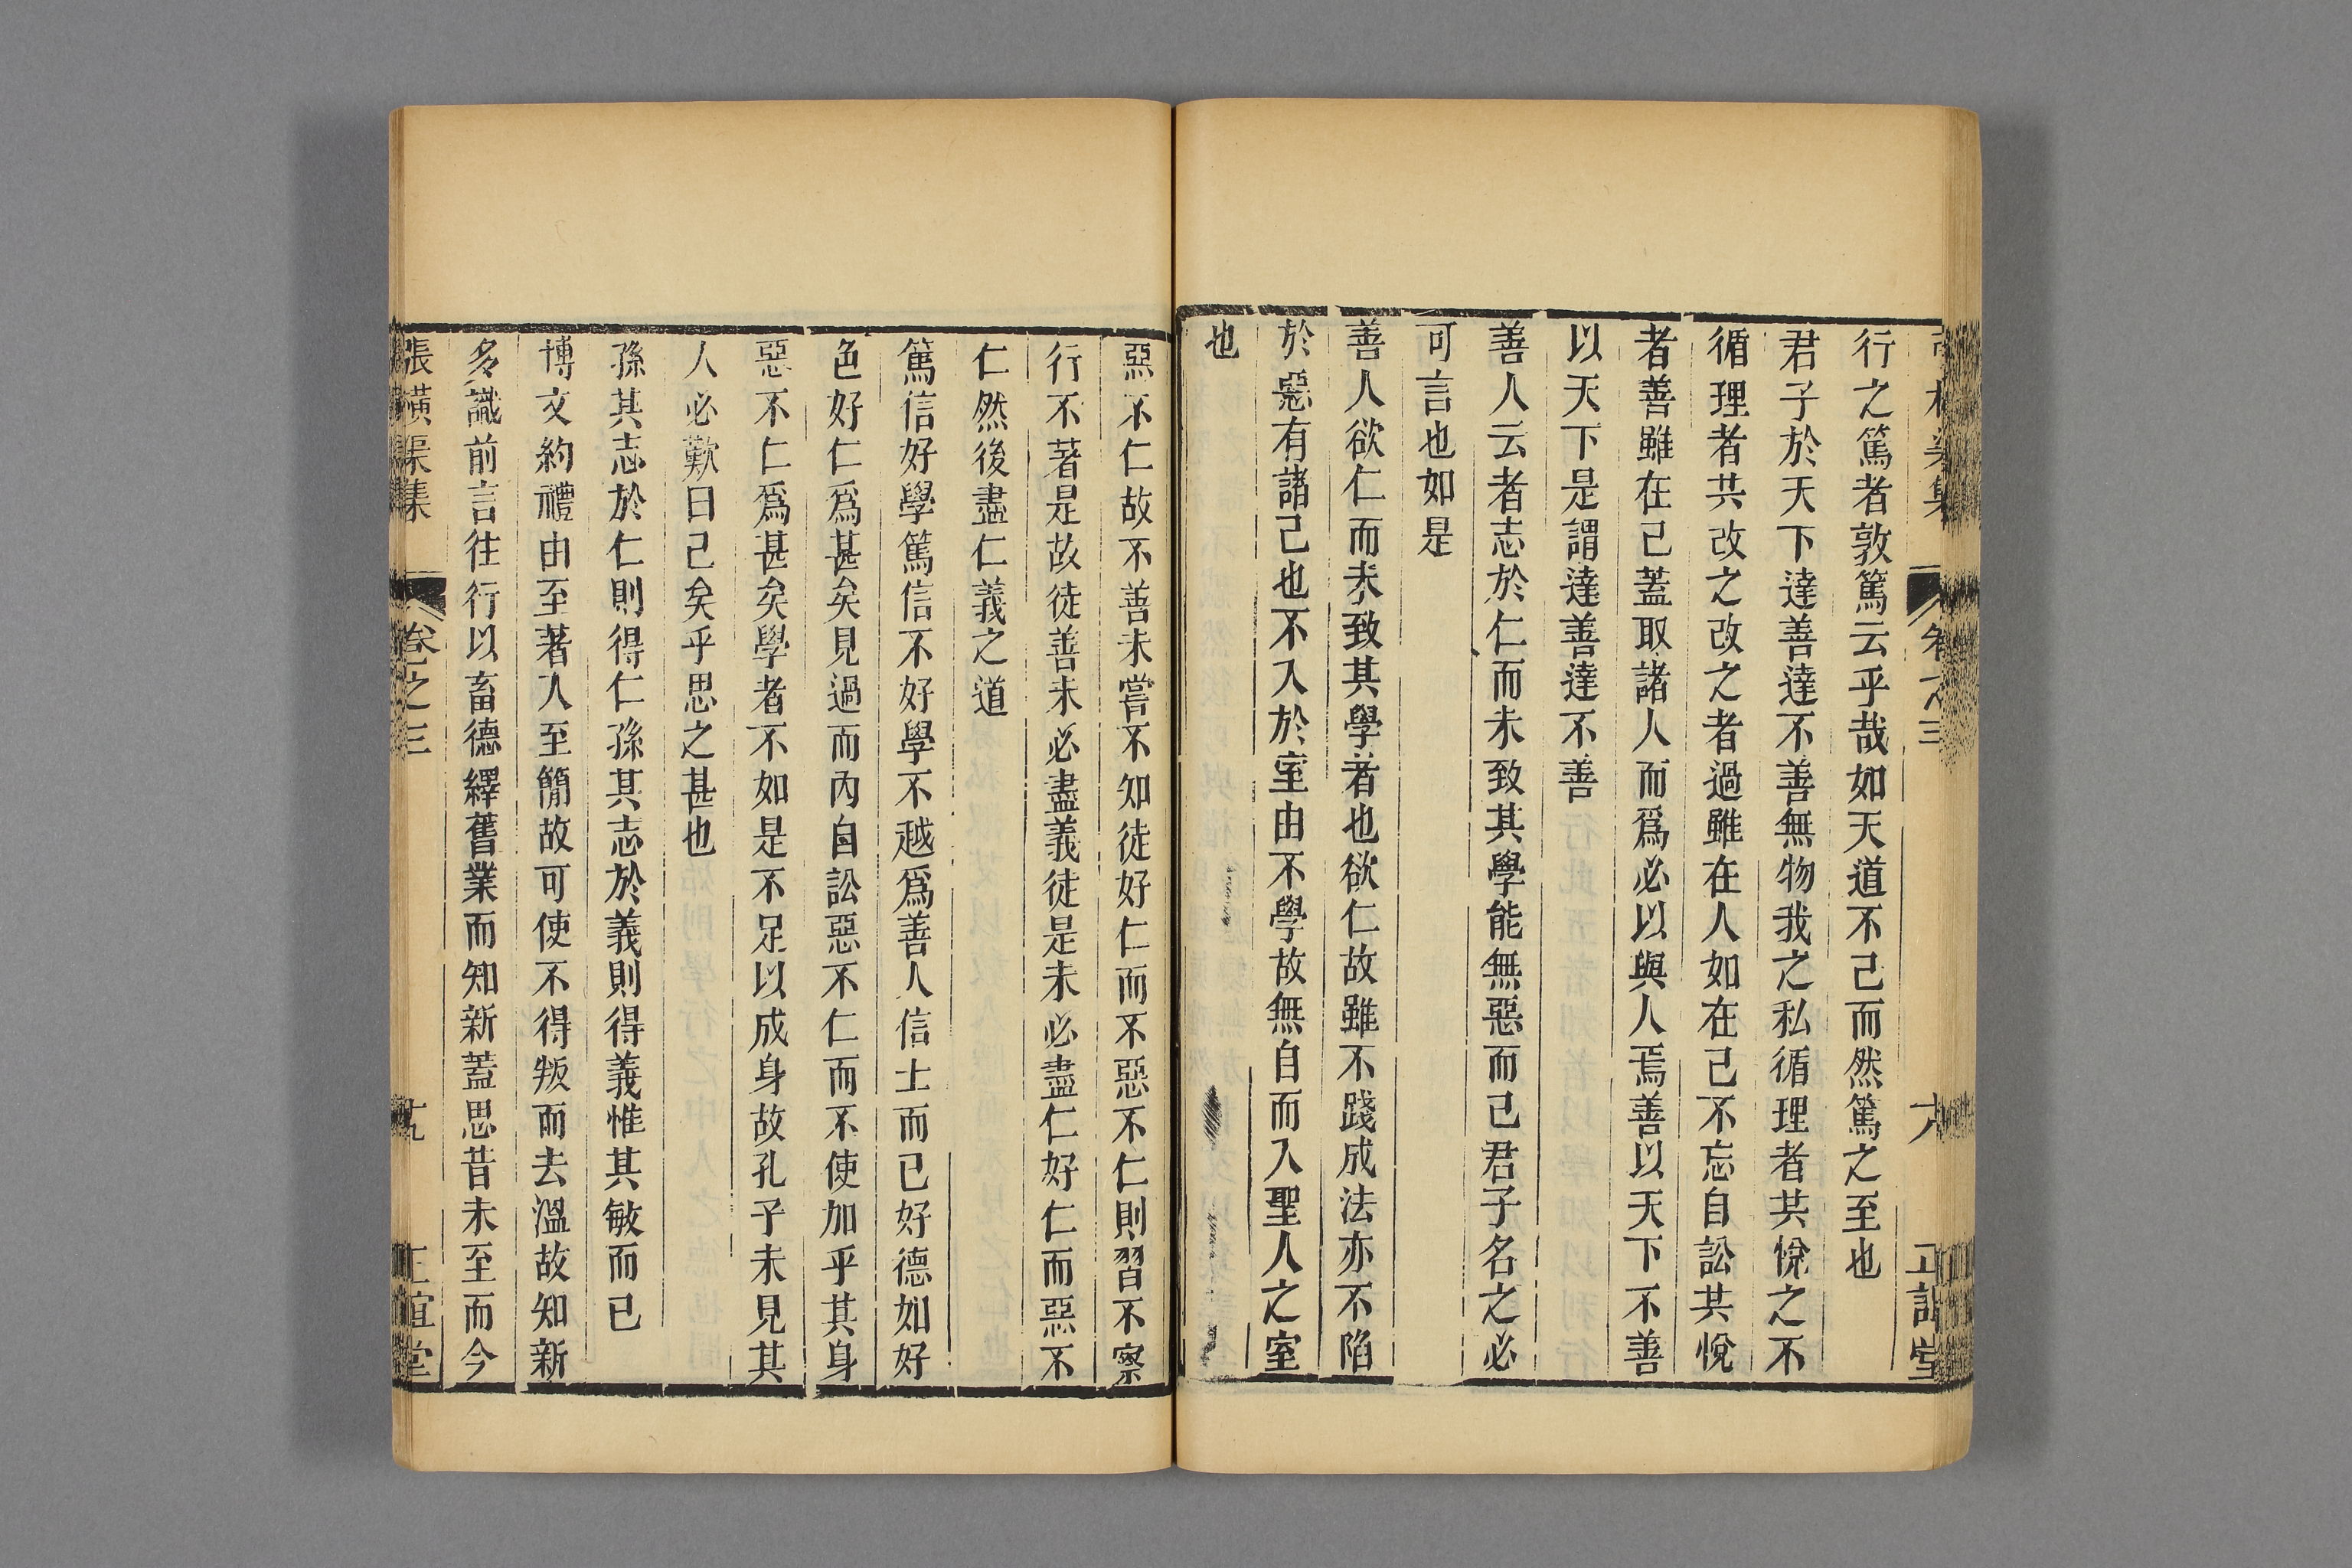 行之篤者敦篤云乎哉如天道不已而然篤之至也
君子於天下達善達不善無物我之私循理者共悅之不
循理者共改之改之者過雖在人如在己不忘自訟共悅
者善雖在己蓋取諸人而爲必以與人焉善以天下不善
以天下是謂達善達不善
善人云者志於仁而未致其學能無惡而已君子名之必
可言也如是
善人欲仁而未致其學者也欲仁故雖不踐成法亦不陷
於惡有諸己也不入於室由不學故無自而入聖人之室
也
惡不仁故不善未嘗不知徒好仁而不惡不仁則習不察
行不著是故徒善未必盡義徒是未必盡仁好仁而惡不
仁然後盡仁義之道
篤信好學篤信不好學不越爲善人信士而已好德如好
色好仁爲甚矣見過而內自訟惡不仁而不使加乎其身
惡不仁爲甚矣學者不如是不足以成身故孔子未見其
人必歎曰已矣乎思之甚也
孫其志於仁則得仁孫其志於義則得義惟其敏而已
博文約禮由至著入至簡故可使不得叛而去溫故知新
多識前言往行以畜德繹舊業而知新蓋思昔未至而今
張橫渠集 卷之三 十九 正誼堂